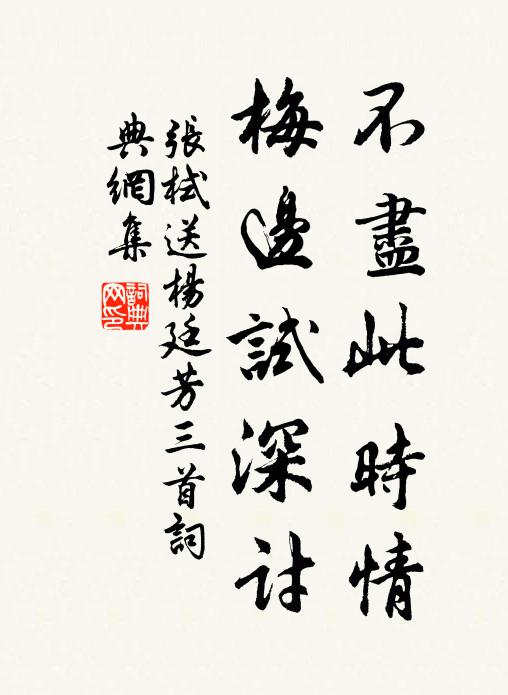 不盡此時情
梅邊試深討
張栻送楊廷芳三首詞
典網集
詞典
网印